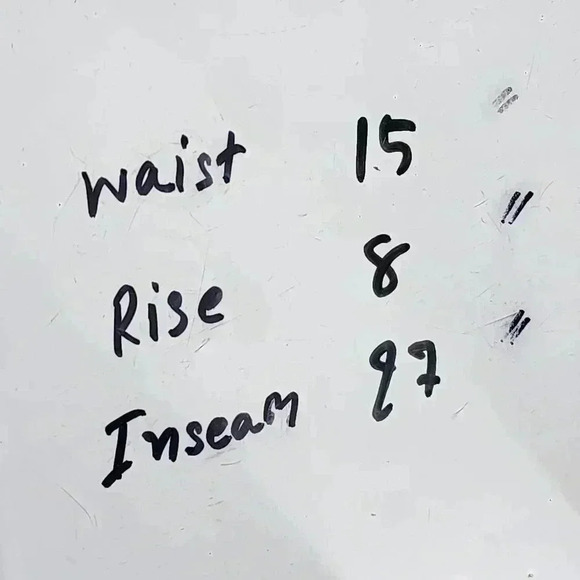 Waist 15 "
Rise 8 "
Inseam 27 "